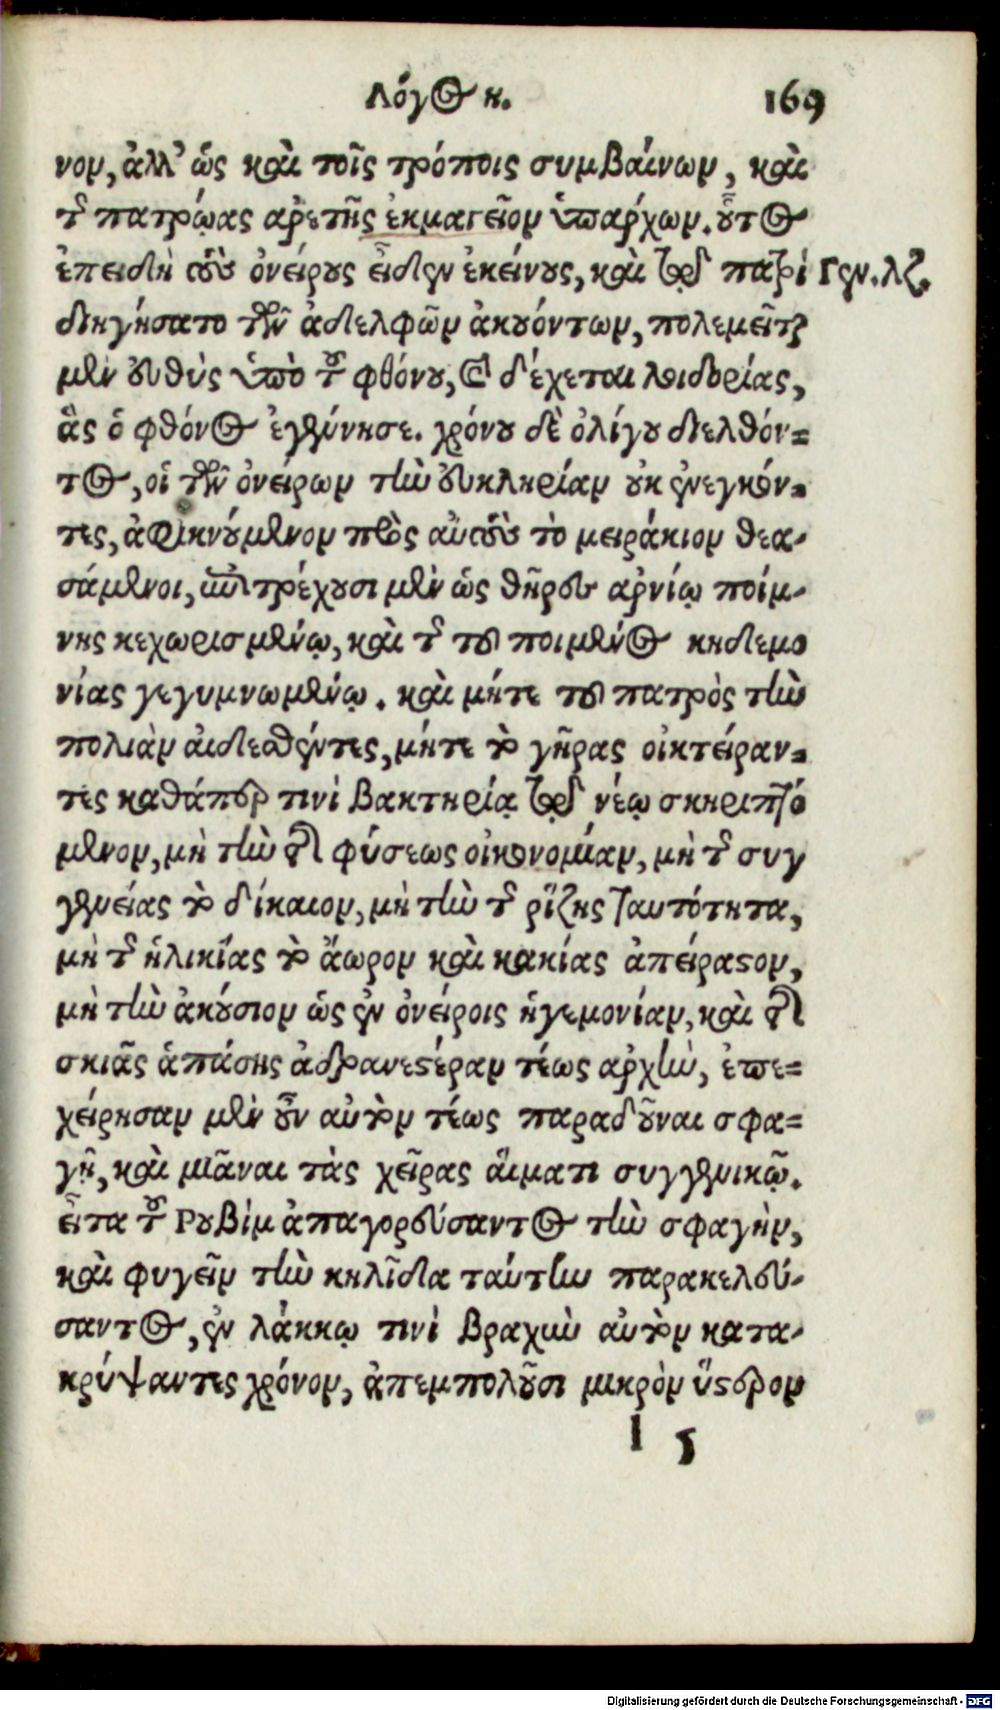 Λόγος κ. 169
νον, ἀλλ' ὡς καὶ τοῖς τρόποις συμβαίνων, καὶ
τῆς πατρῴας ἀρετῆς ἐκμαγεῖον ὑπάρχων. οὗτος
ἐπειδὴ τοὺς ὀνείρους εἶδεν ἐκείνους, καὶ τῷ πατρὶ Γεν. λζ.
διηγήσατο τῶν ἀδελφῶν ἀκουόντων, πολεμεῖται
μὲν εὐθὺς ὑπὸ τοῦ φθόνου, καὶ δέχεται λοιδορίας,
ἃς ὁ φθόνος ἐγέννησε. χρόνου δὲ ὀλίγου διελθόν-
τος, οἱ τῶν ὀνείρων τὴν εὐκληρίαν οὐκ ἐνεγκόν-
τες, ἀφικνούμενον πρὸς αὐτοὺς τὸ μειράκιον θεα-
σάμενοι, ἐπιτρέχουσι μὲν ὡς θῆρες ἀρνίῳ ποίμ-
νης κεχωρισμένῳ, καὶ τῆς τοῦ ποιμένος κηδεμο
νίας γεγυμνωμένῳ. καὶ μήτε τοῦ πατρὸς τὴν
πολιὰν αἰδεσθέντες, μήτε τὸ γῆρας οἰκτείραν-
τες καθάπερ τινὶ βακτηρίᾳ τῷ νέῳ σκηριπτό
μενον, μὴ τὴν τῆς φύσεως οἰκονομίαν, μὴ τῆς συγ
γενείας τὸ δίκαιον, μὴ τὴν τῆς ῥίζης ταυτότητα,
μὴ τῆς ἡλικίας τὸ ἄωρον καὶ κακίας ἀπείραστον,
μὴ τὴν ἀκούσιον ὡς ἐν ὀνείροις ἡγεμονίαν, καὶ τῆς
σκιᾶς ἁπάσης ἀδρανεστέραν τέως ἀρχὴν, ἐπε-
χείρησαν μὲν οὖν αὐτὸν τέως παραδοῦναι σφα-
γῇ, καὶ μιᾶναι τὰς χεῖρας αἵματι συγγενικῷ.
εἶτα τοῦ Ρουβὶμ ἀπαγορεύσαντος τὴν σφαγὴν,
καὶ φυγεῖν τὴν κηλῖδα ταύτην παρακελεύ-
σαντος, ἐν λάκκῳ τινὶ βραχὺν αὐτὸν κατα-
κρύψαντες χρόνον, ἀπεμπολοῦσι μικρὸν ὕστερον
l 5
Digitalisierung gefördert durch die Deutsche Forschungsgemeinschaft - DFG